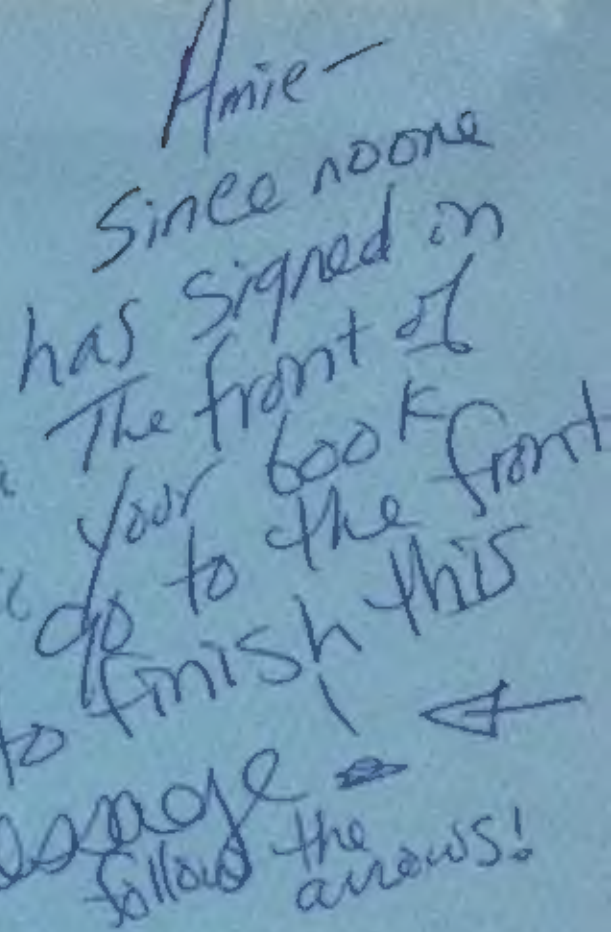 Amie-
Since noone
has signed in
The front of
your book
go to the front
to finish this
essage!
follow the
arrows!